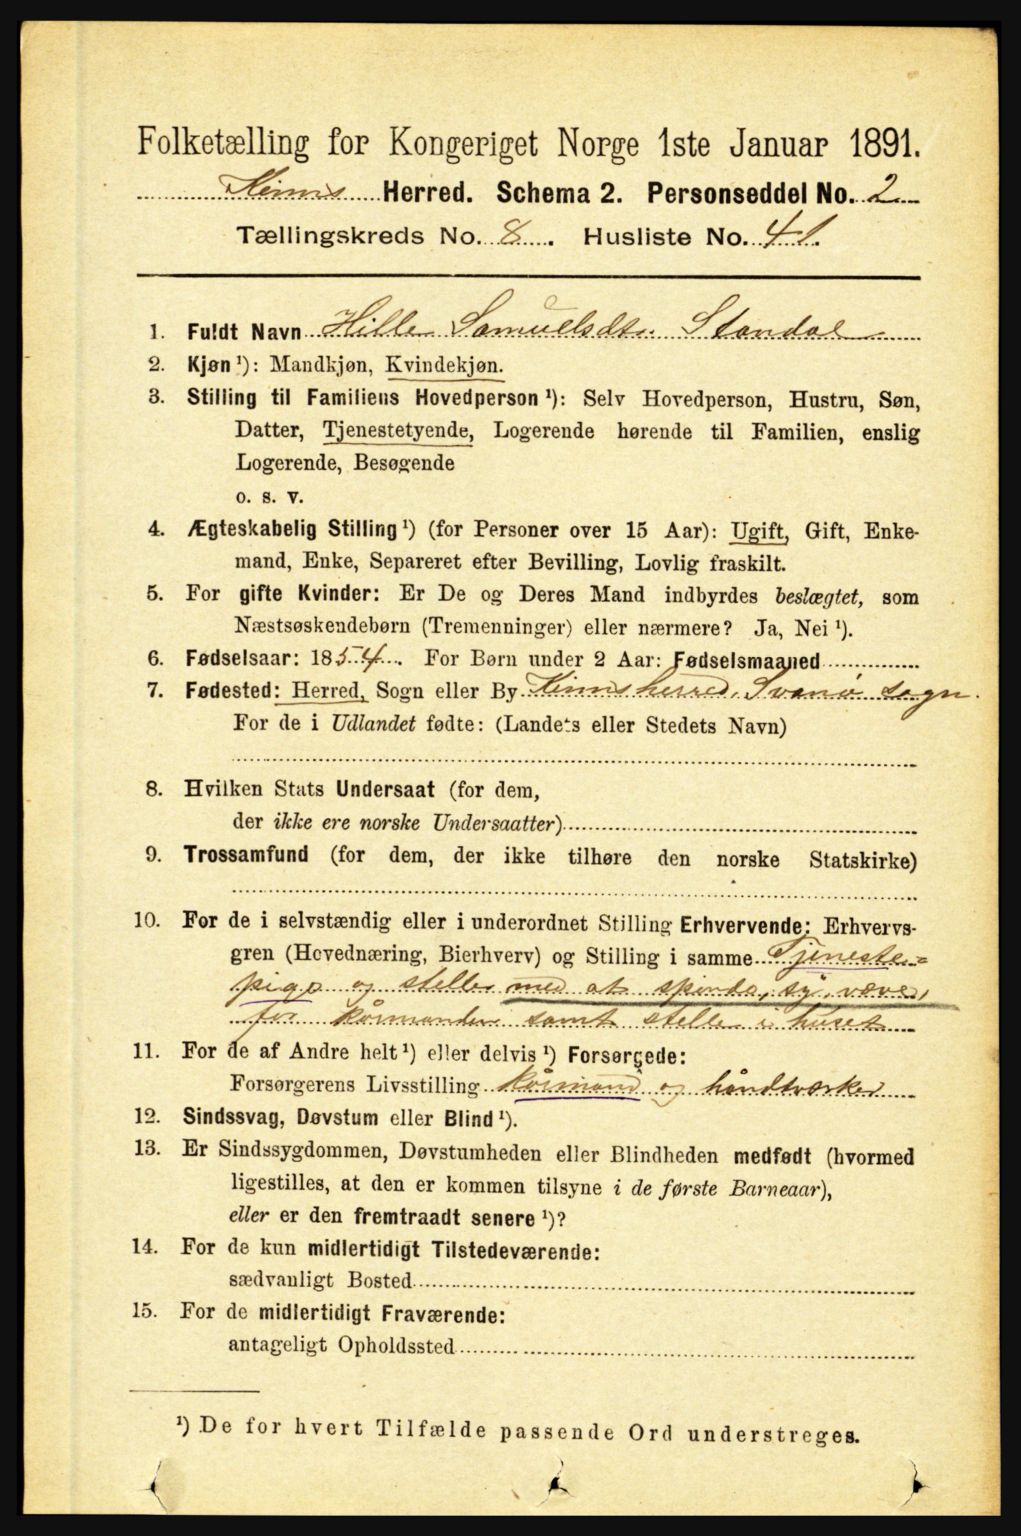 Folketælling for Kongeriget Norge 1ste Januar 1891.
Kinns Herred. Schema 2. Personseddel No. 2
Tællingskreds No. 8. Husliste No. 41.
1. Fuldt Navn Hille Samuelsdt. Standal
2. Kjøn ¹): Mandkjøn, Kvindekjøn.
3. Stilling til Familiens Hovedperson ¹): Selv Hovedperson, Hustru, Søn,
Datter, Tjenestetyende, Logerende hørende til Familien, enslig
Logerende, Besøgende
o. s. v.
4. Ægteskabelig Stilling ¹) (for Personer over 15 Aar): Ugift, Gift, Enke-
mand, Enke, Separeret efter Bevilling, Lovlig fraskilt.
5. For gifte Kvinder: Er De og Deres Mand indbyrdes beslægtet, som
Næstsøskendebørn (Tremenninger) eller nærmere? Ja, Nei ¹).
6. Fødselsaar: 1854. For Børn under 2 Aar: Fødselsmaaned
7. Fødested: Herred, Sogn eller By Kinnsherred, Svanø sogn.
For de i Udlandet fødte: (Landets eller Stedets Navn)
8. Hvilken Stats Undersaat (for dem,
der ikke ere norske Undersaatter)
9. Trossamfund (for dem, der ikke tilhøre den norske Statskirke)
10. For de i selvstændig eller i underordnet Stilling Erhvervende: Erhvervs-
gren (Hovednæring, Bierhverv) og Stilling i samme Tjeneste=
pige og steller med at spinde, sy, væve,
for kårmanden samt steller i huset
11. For de af Andre helt ¹) eller delvis ¹) Forsørgede:
Forsørgerens Livsstilling kårmand og håndtværker
12. Sindssvag, Døvstum eller Blind ¹).
13. Er Sindssygdommen, Døvstumheden eller Blindheden medfødt (hvormed
ligestilles, at den er kommen tilsyne i de første Barneaar),
eller er den fremtraadt senere ¹)?
14. For de kun midlertidigt Tilstedeværende:
sædvanligt Bosted
15. For de midlertidigt Fraværende:
antageligt Opholdssted
¹) De for hvert Tilfælde passende Ord understreges.